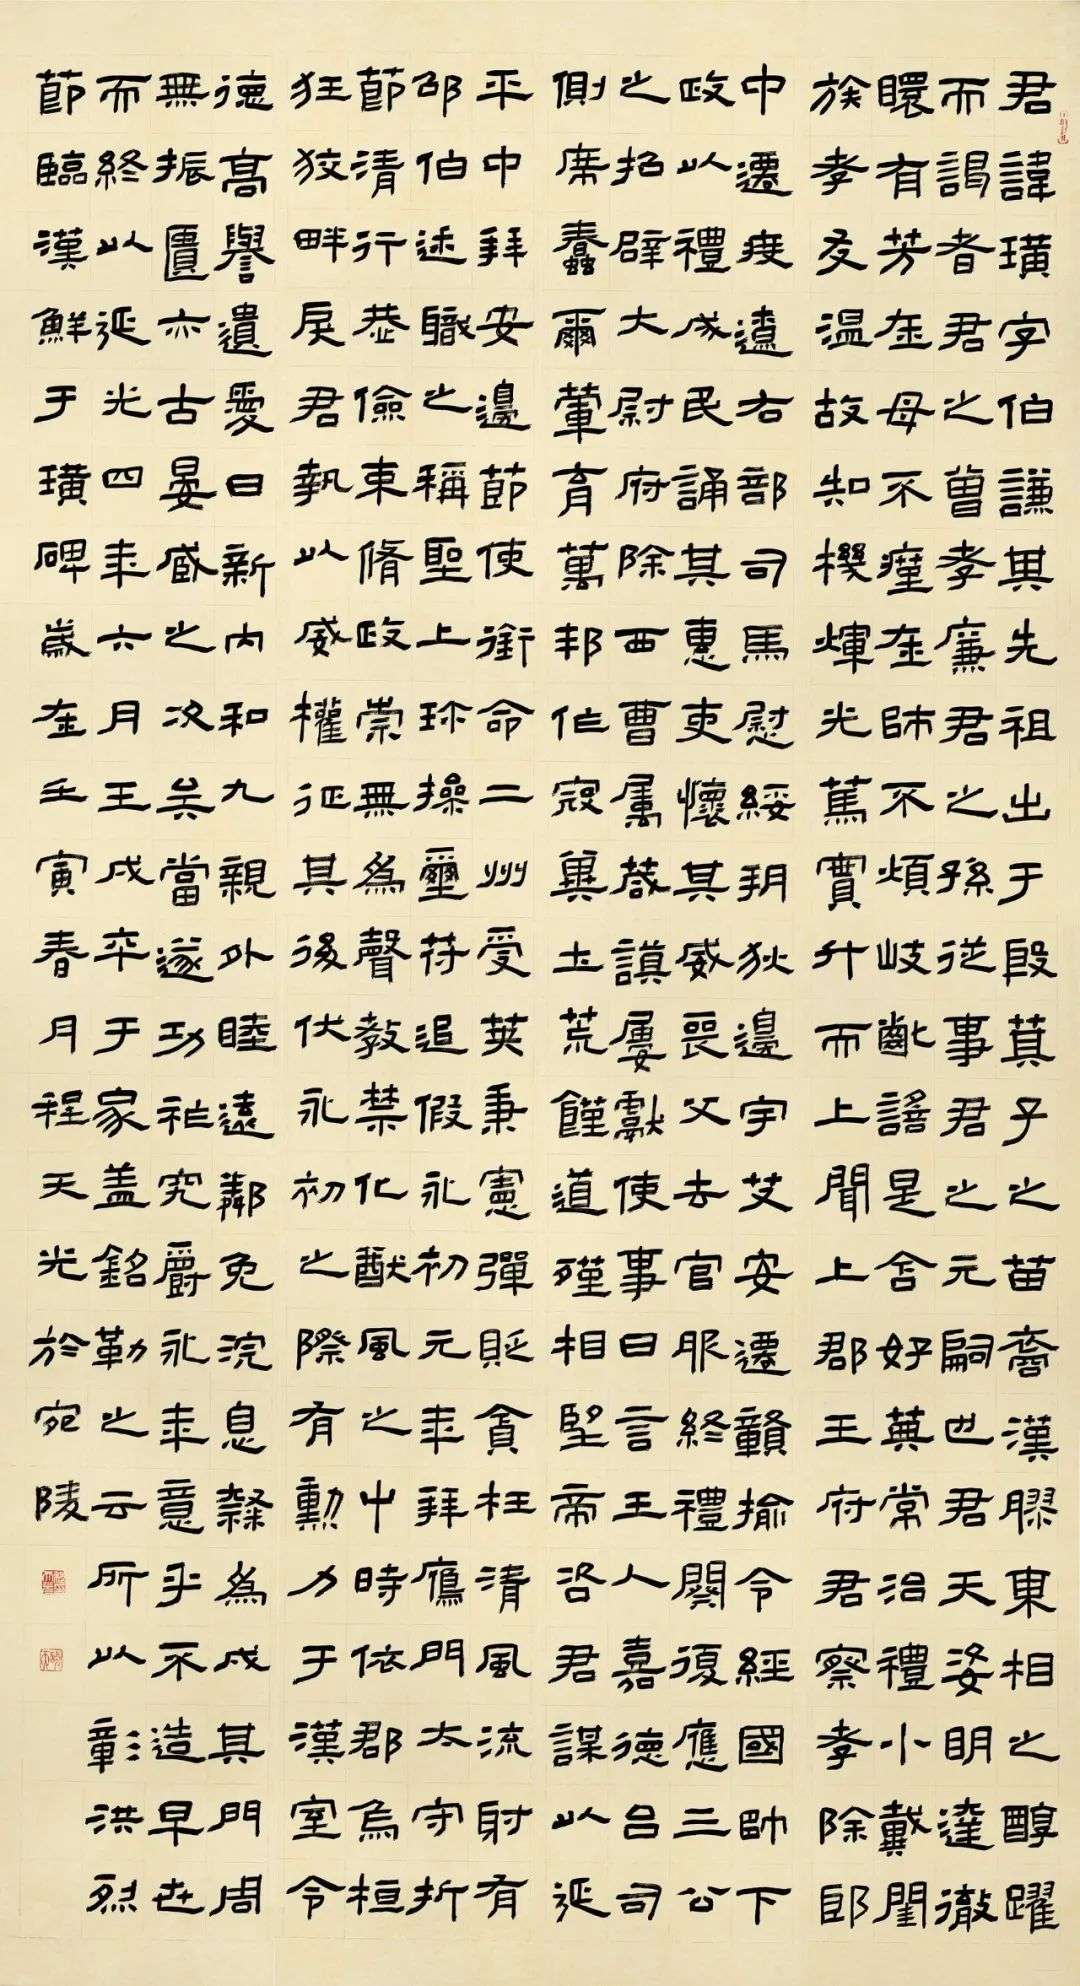 君諱璜字伯謙其先祖出于殷箕子之苗裔漢膠東相之醇躍
而謁者君之曾孝廉君之孫從事君之元嗣也君天姿明達徹
曖有芳在母不瘽在師不煩岐齔謠是含好英常治禮小戴閨
族孝友温故知機煇光篤實升而上聞上郡王府君察孝除郎
中遷度遼右部司馬慰綏朔狄邊宇艾安遷贛揄令經國帥下
政以禮成民誦其惠吏懷其威喪父去官服終禮闋復應三公
之招辟大尉府除西曹屬菆謨屢獻使事日言王人嘉德吕司
側席蠢爾葷育萬邦作寇冀土荒饉道殣相望帝咨君謀以延
平中拜安邊節使銜命二州受莢秉憲彈貶貪枉清風流射有
邵伯述職之稱聖上珎操璽符追假永初元年拜鴈門太守折
節清行恭儉束脩政崇無為聲教禁化猷風之中時依郡烏桓
狂狡畔戾君執以威權征其後伏永初之際有勳力于漢室令
德高譽遺愛日新内和九親外睦遠鄰免浣息隸為成其門周
無振匱亦古晏臧之次矣當遂功祚究爵永年意乎不造早世
而終以延光四年六月壬戌卒于家盖銘勒之云所以彰洪烈
節臨漢鮮于璜碑歲在壬寅春月程天光於宛陵